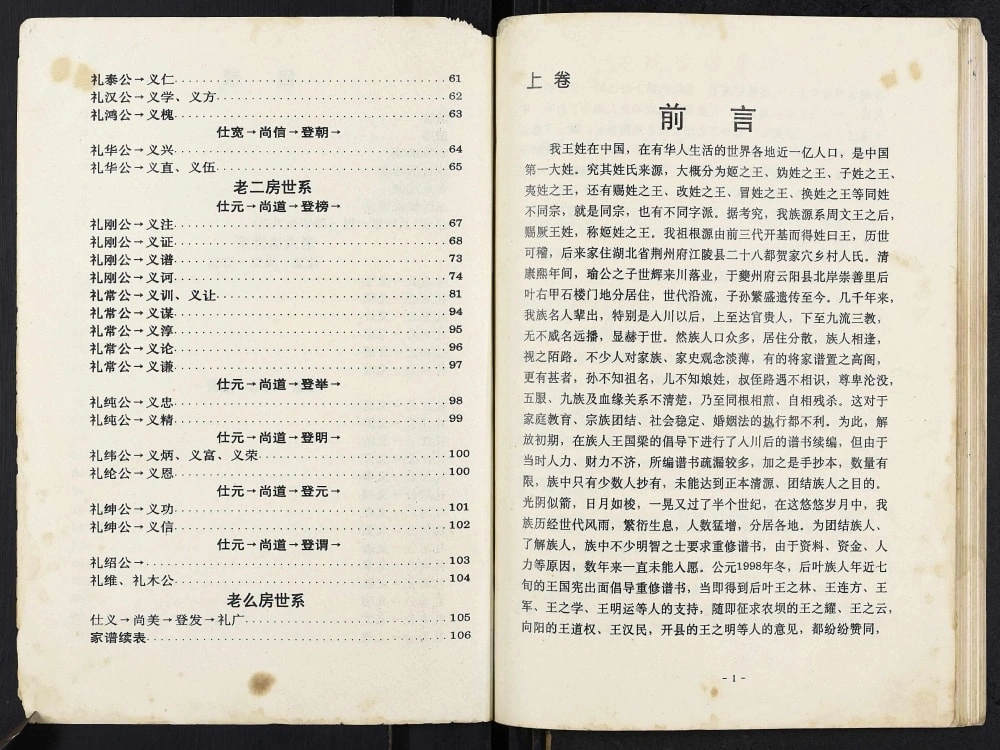 礼泰公→义仁 61
礼汉公→义学、义方 62
礼鸿公→义槐 63
仕宽→尚信→登朝→
礼华公→义兴 64
礼华公→义直、义伍 65
老二房世系
仕元→尚道→登榜→
礼刚公→义注 67
礼刚公→义证 68
礼刚公→义谱 73
礼刚公→义诃 74
礼常公→义训、义让 81
礼常公→义谋 94
礼常公→义淳 95
礼常公→义论 96
礼常公→义谦 97
仕元→尚道→登举→
礼纯公→义忠 98
礼纯公→义精 99
仕元→尚道→登明→
礼纬公→义炳、义富、义荣 100
礼纶公→义恩 100
仕元→尚道→登元→
礼绅公→义功 101
礼绅公→义信 102
仕元→尚道→登谓→
礼绍公→ 103
礼维、礼木公 104
老么房世系
仕义→尚美→登发→礼广 105
家谱续表 106
上 卷
前 言
我王姓在中国，在有华人生活的世界各地近一亿人口，是中国
第一大姓。究其姓氏来源，大概分为姬之王、妫姓之王、子姓之王、
夷姓之王，还有赐姓之王、改姓之王、冒姓之王、换姓之王等同姓
不同宗，就是同宗，也有不同字派。据考究，我族源系周文王之后，
赐厥王姓，称姬姓之王。我祖根源由前三代开基而得姓曰王，历世
可稽，后来家住湖北省荆州府江陵县二十八都贺家穴乡村人氏。清
康熙年间，瑜公之子世辉来川落业，于夔州府云阳县北岸崇善里后
叶右甲石楼门地分居住，世代沿流，子孙繁盛遗传至今。几千年来，
我族名人辈出，特别是入川以后，上至达官贵人，下至九流三教，
无不威名远播，显赫于世。然族人口众多，居住分散，族人相逢，
视之陌路。不少人对家族、家史观念淡薄，有的将家谱置之高阁，
更有甚者，孙不知祖名，儿不知娘姓，叔侄路遇不相识，尊卑沦没，
五服、九族及血缘关系不清楚，乃至同根相煎、自相残杀。这对于
家庭教育、宗族团结、社会稳定、婚姻法的执行都不利。为此，解
放初期，在族人王国梁的倡导下进行了入川后的谱书续编，但由于
当时人力、财力不济，所编谱书疏漏较多，加之是手抄本，数量有
限，族中只有少数人抄有，未能达到正本清源、团结族人之目的。
光阴似箭，日月如梭，一晃又过了半个世纪，在这悠悠岁月中，我
族历经世代风雨，繁衍生息，人数猛增，分居各地。为团结族人、
了解族人，族中不少明智之士要求重修谱书，由于资料、资金、人
力等原因，数年来一直未能人愿。公元1998年冬，后叶族人年近七
旬的王国宪出面倡导重修谱书，当即得到后叶王之林、王连方、王
军、王之学、王明运等人的支持，随即征求农坝的王之耀、王之云，
向阳的王道权、王汉民，开县的王之明等人的意见，都纷纷赞同，
- 1 -